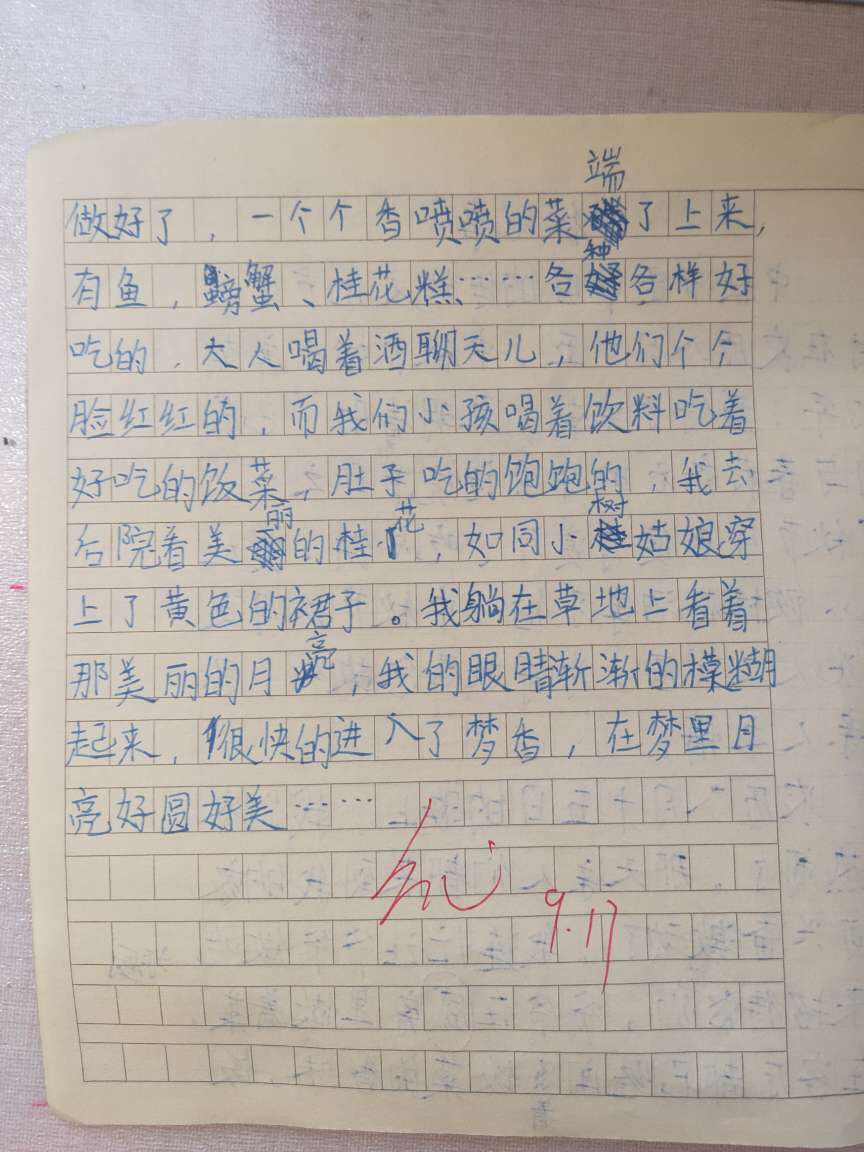 做好了，一个个香喷喷的菜端了上来，
有鱼，螃蟹、桂花糕、……各种各样好
吃的，大人喝着酒聊天儿，他们个个
脸红红的，而我们小孩喝着饮料吃着
好吃的饭菜，肚子吃的饱跑的，我去
后院看美丽的桂花，如同小树姑娘穿
上了黄色的裙子。我躺在草地上看着
那美丽的月亮，我的眼睛渐渐的模糊
起来，很快的进入了梦香，在梦里月
亮好圆好美……
9.17